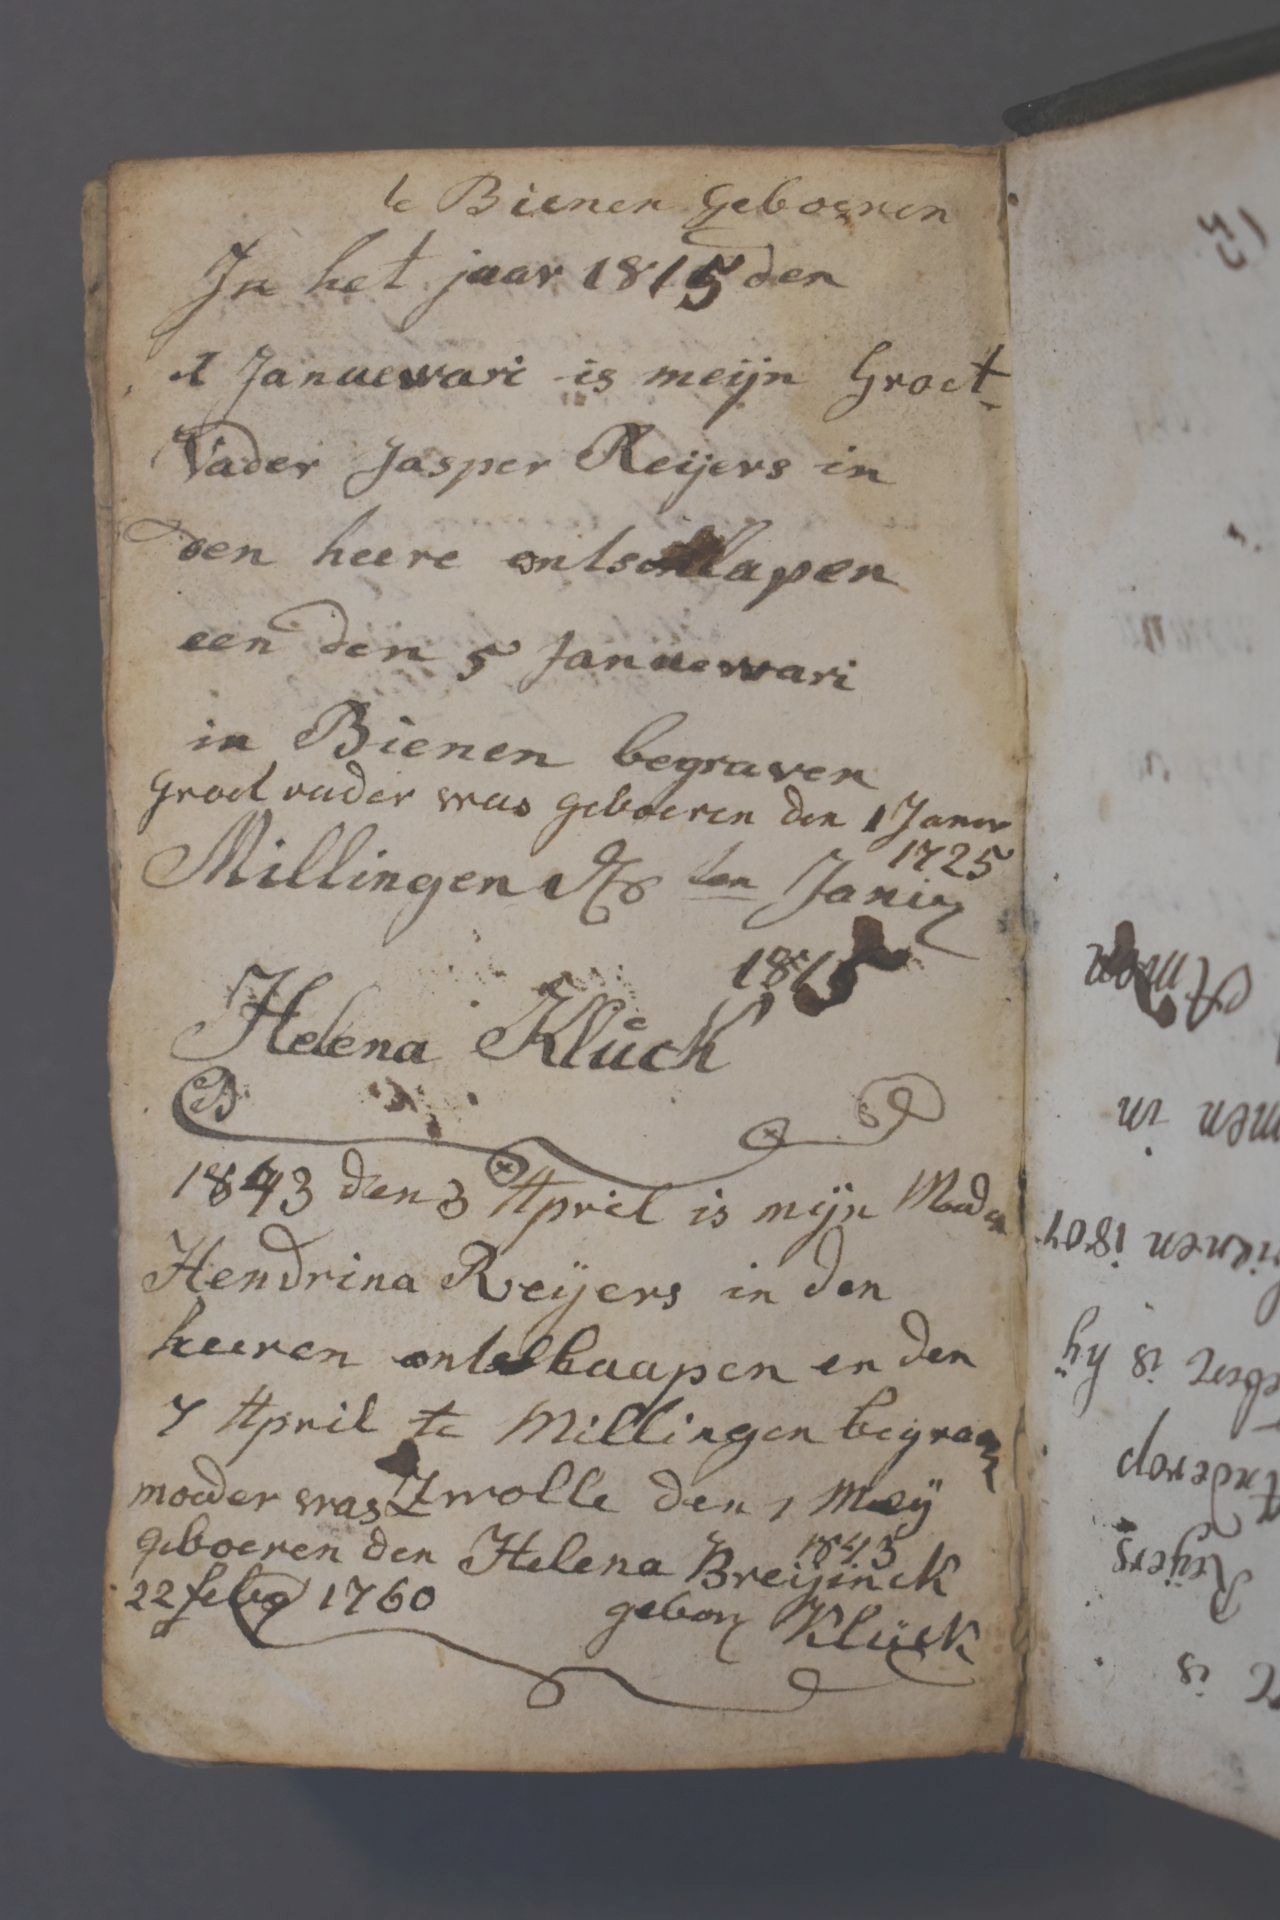 te Bienen geboeren
In het jaar 1815 den
1 Januewari is meijn Groet
Vader Jasper Reijers in
den heere ontschlapen
een den 5 Januewari
in Bienen begraven
groet vader was geboeren den 1 Janew
1725
Millingen den Janiz
1815
Helena Klůck
1843 den 3 April is mijn Moeder
Hendrina Reijers in den
heeren ontslaapen en den
7 April te Millingen begraven
moeder was Zwolle den 1 Meij
1843
geboeren den Helena Breijinck
22 feb 1760 gebor Klůck
Reijers
Anderop
is hij
1807
men in
is